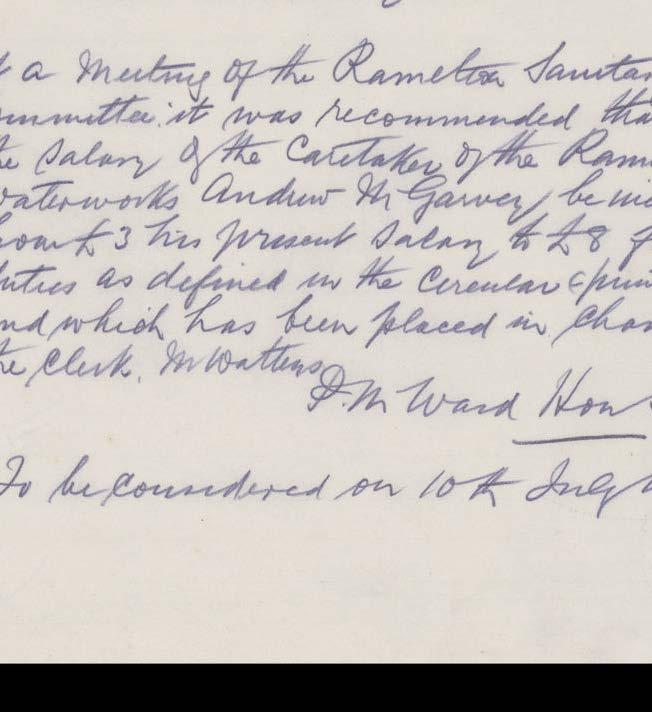 t a Meeting of the Ramelton Sanitar
ommittee it was recommended tha
he Salary of the Caretaker of the Ram
waterworks Andrew McGarvey be inc
from £3 his present Salary to £8 f
duties as defined in the circular
and which has been placed in Char
he Clerk. Mr Watters
P. M Ward Hon
To be considered on 10th July